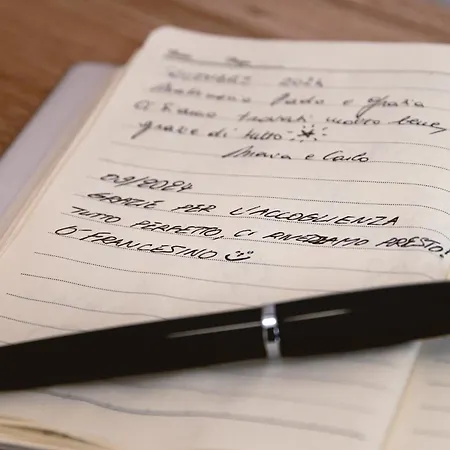 2024
e Grazia
Ci siamo trovati molto bene,
grazie di tutto
e Carlo
09/2024
GRAZIE PER L'ACCOGLIENZA
TUTTO PERFETTO, CI RIVEDIAMO PRESTO!
O' FRANCESINO